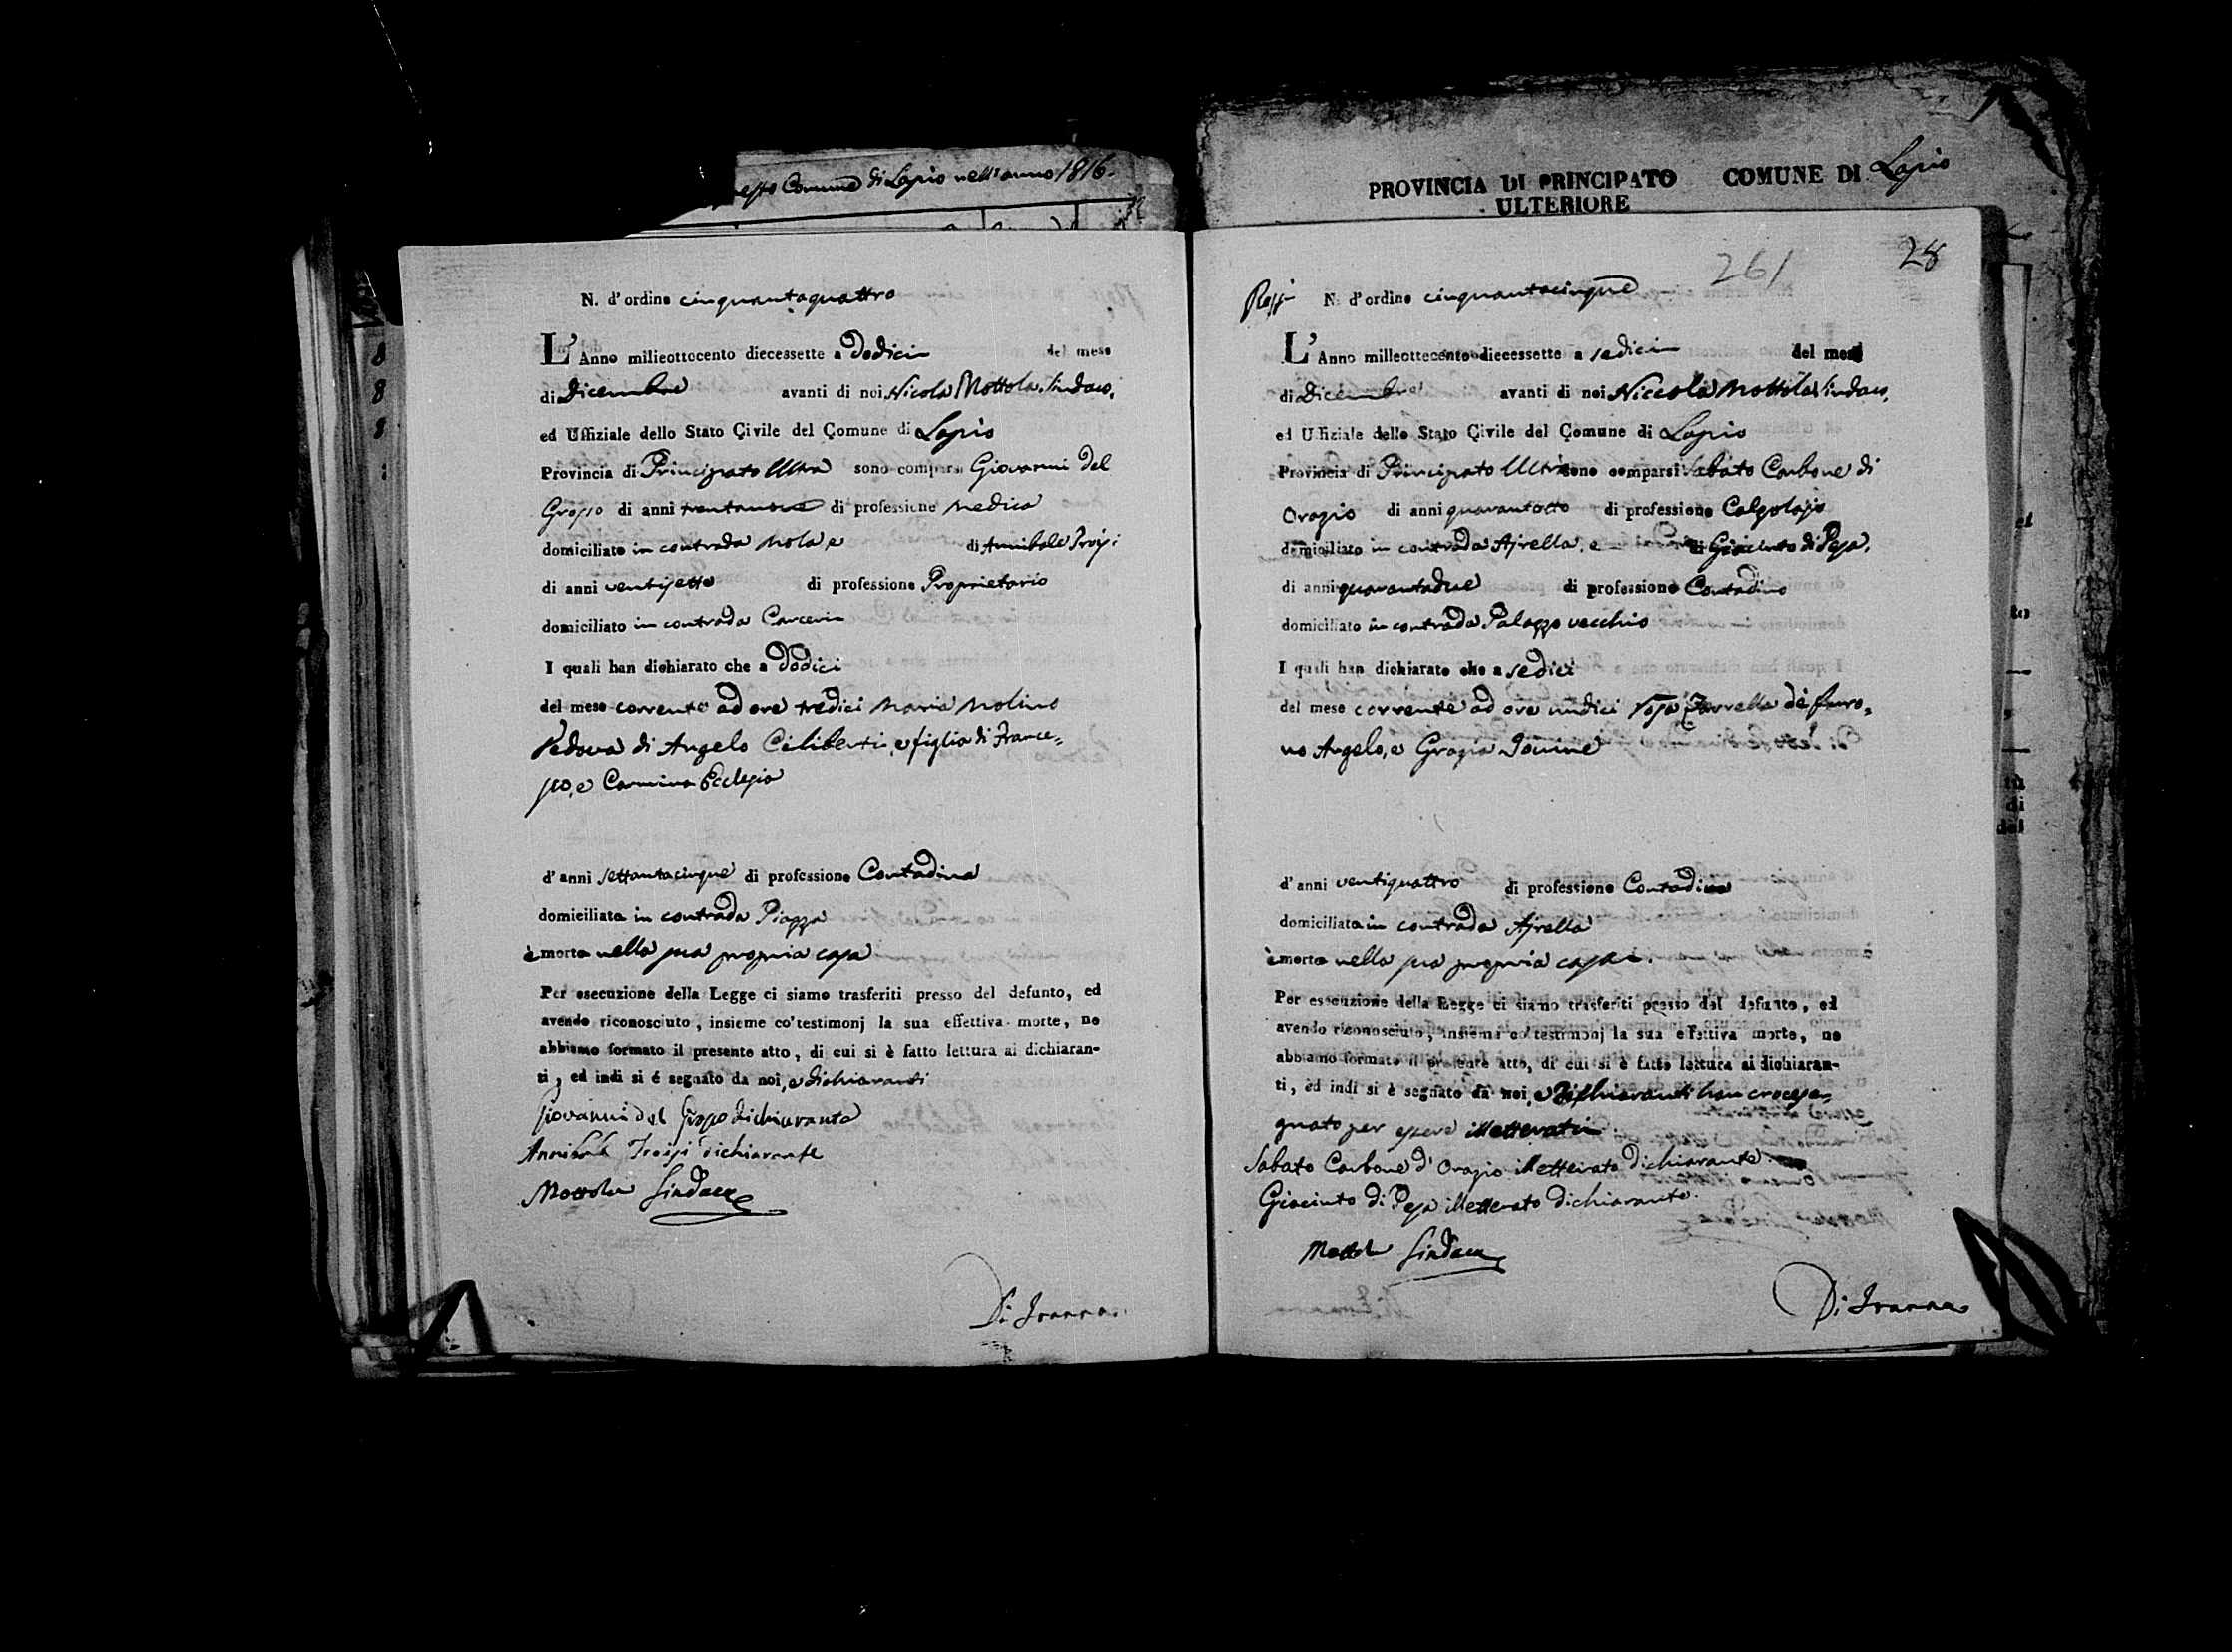 esso Comune di Lapio nell'anno 1816.
PROVINCIA DI PRINCIPATO COMUNE DI Lapio
ULTERIORE
N. d'ordine cinquantaquattro
L'Anno milleottocento diecessette a Dodici del mese
di Dicembre avanti di noi Nicola Mottola Sindaco,
ed Uffiziale dello Stato Civile del Comune di Lapio
Provincia di Principato Ultra sono comparsi Giovanni del
Grosso di anni trentanove di professione Medico
domiciliato in contrada Mola, e di Annibale Troisi
di anni ventisette di professione Proprietario
domiciliato in contrada Carceri
I quali han dichiarato che a Dodici
del mese corrente ad ore tredici Maria Molino
Vedova di Angelo Ciliberti, e figlia di France=
sco, e Carmina Ecclesia
d'anni settantacinque di professione Contadina
domiciliata in contrada Piazza
è morta nella sua propria casa
Per esecuzione della Legge ci siamo trasferiti presso del defunto, ed
avendo riconosciuto, insieme co'testimonj la sua effettiva morte, ne
abbiamo formato il presente atto, di cui si è fatto lettura ai dichiaran-
ti, ed indi si é segnato da noi, e dichiaranti
Giovanni del Grosso dichiarante
Annibale Troisi dichiarante
Mottola Sindaco
Di Ioanna
261
28
N. d'ordine cinquantacinque
L'Anno milleottocento diecessette a sedici del mese
di Dicembre avanti di noi Niccola Mottola Sindaco,
ed Uffiziale dello Stato Civile del Comune di Lapio
Provincia di Principato Ultra sono comparsi Sabato Carbone di
Orazio di anni quarantotto di professione Calzolajo
domiciliato in contrada Ajrella, e di Giacinto di Pesa,
di anni quarantadue di professione Contadino
domiciliato in contrada Palazzo vecchio
I quali han dichiarato che a sedici
del mese corrente ad ore undici Rosa Zarrella de furo=
no Angelo, e Grazia Iovine
d'anni ventiquattro di professione Contadina
domiciliata in contrada Ajrella
è morta nella sua propria casa.
Per esecuzione della Legge ci siamo trasferiti presso del defunto, ed
avendo riconosciuto, insieme co'testimonj la sua effettiva morte, ne
abbiamo formato il presente atto, di cui si è fatto lettura ai dichiaran-
ti, ed indi si è segnato da noi, e dichiaranti han crocese=
gnato per essere illetterati
Sabato Carbone d'Orazio illetterato dichiarante
Giacinto di Pesa illetterato dichiarante.
Mottola Sindaco
Di Ioanna